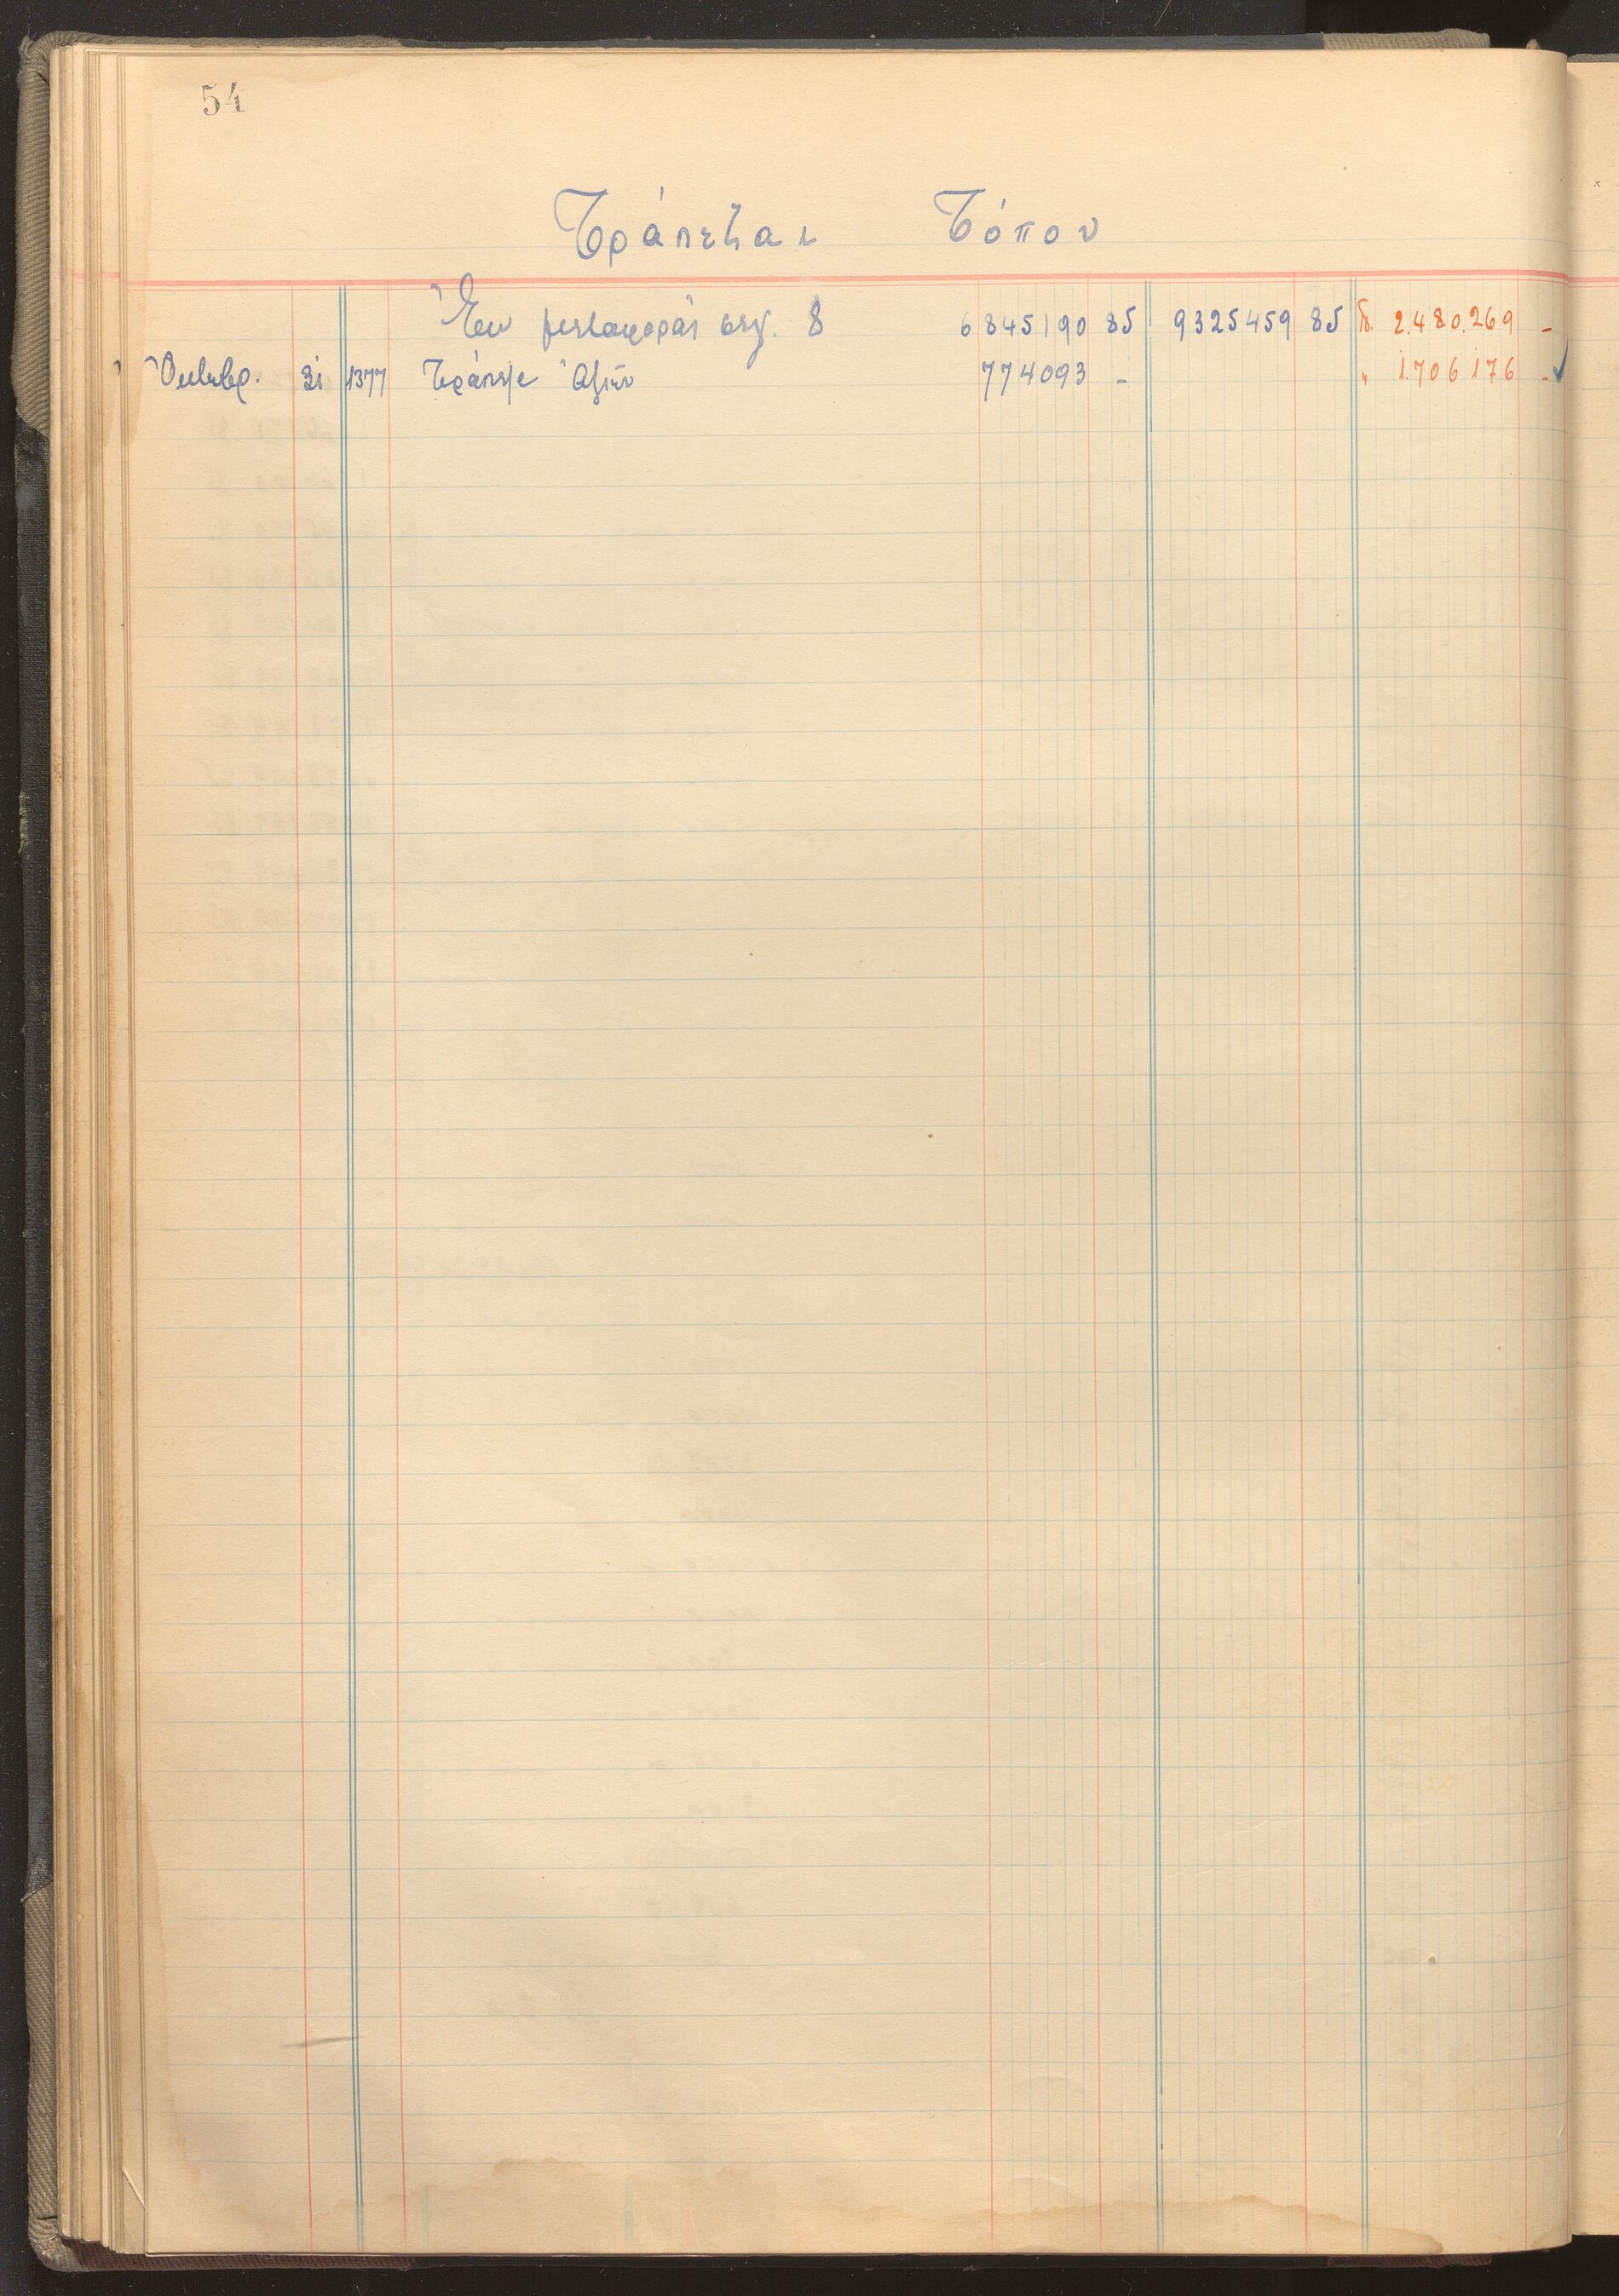 54
Τράπεζαι Τόπου
Ἐκ μεταφορᾶς σελ. 8 6845190 85 9325459 85 δ. 2.480.269 -
Ὀκτωβρ. 31 1377 Τράπεζαι Ἀξιῶν 774093 - " 1.706.176 -